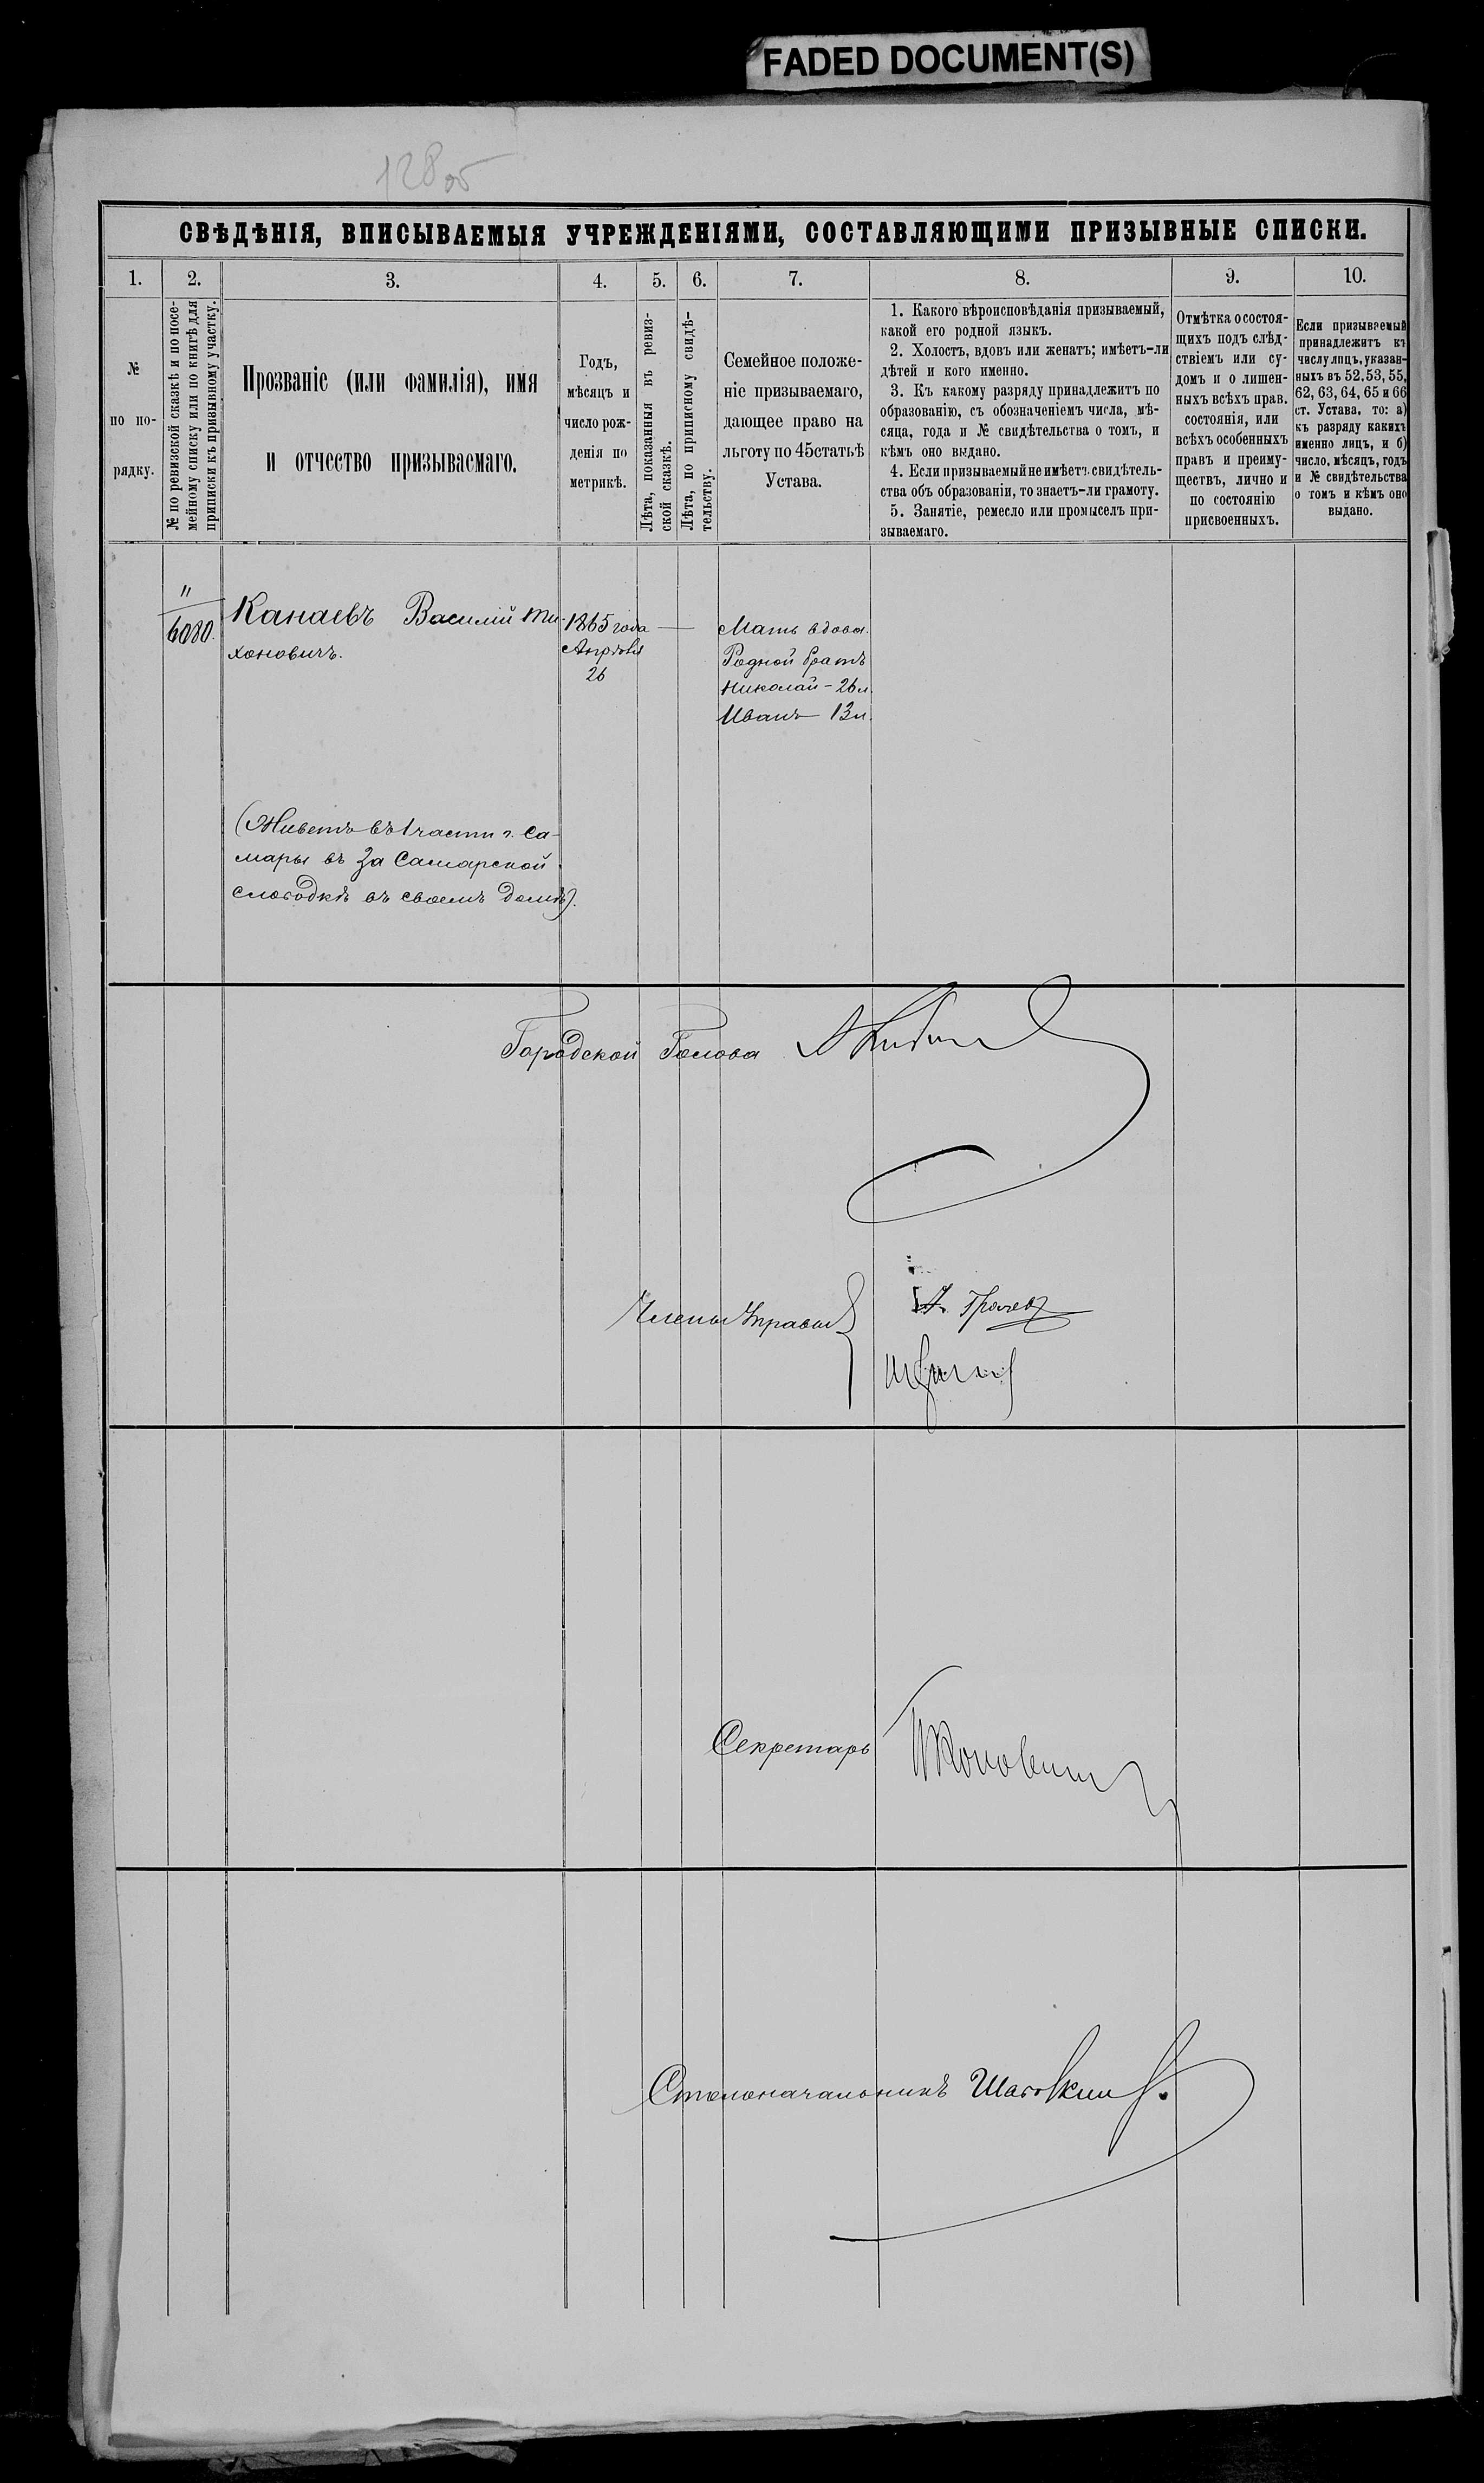 FADED DOCUMENT(S)
128 об
СВѢДѢНІЯ, ВПИСЫВАЕМЫЯ УЧРЕЖДЕНІЯМИ, СОСТАВЛЯЮЩИМИ ПРИЗЫВНЫЕ СПИСКИ.
1.
2.
3.
4.
5.
6.
7.
8.
9.
10.
№
по по-
рядку.
№ по ревизской сказкѣ и по посе-
мейному списку или по книгѣ для
приписки къ призывному участку.
Прозваніе (или фамилія), имя
и отчество призываемаго.
Годъ,
мѣсяцъ и
число рож-
денія по
метрикѣ.
Лѣта, показанныя въ ревиз-
ской сказкѣ.
Лѣта, по приписному свидѣ-
тельству.
Семейное положе-
ніе призываемаго,
дающее право на
льготу по 45статьѣ
Устава.
1. Какого вѣроисповѣданія призываемый,
какой его родной языкъ.
2. Холостъ, вдовъ или женатъ; имѣетъ-ли
дѣтей и кого именно.
3. Къ какому разряду принадлежитъ по
образованію, съ обозначеніемъ числа, мѣ-
сяца, года и № свидѣтельства о томъ, и
кѣмъ оно выдано.
4. Если призываемый не имѣетъ свидѣтель-
ства объ образованіи, то знаетъ-ли грамоту.
5. Занятіе, ремесло или промыселъ при-
зываемаго.
Отмѣтка о состоя-
щихъ подъ слѣд-
ствіемъ или су-
домъ и о лишен-
ныхъ всѣхъ прав.
состоянія, или
всѣхъ особенныхъ
правъ и преиму-
ществъ, лично и
по состоянію
присвоенныхъ.
Если призываемый
принадлежитъ къ
числу лицъ, указан-
ныхъ въ 52, 53, 55,
62, 63, 64, 65 и 66
ст. Устава, то: а)
къ разряду какихъ
именно лицъ, и б)
число, мѣсяцъ, годъ
и № свидѣтельства
о томъ и кѣмъ оно
выдано.
"
6080.
Канаевъ Василій Ти-
хоновичъ.
1865 года
Апрѣля
26
—
Мать вдова.
Родной братъ
Николай - 26 л.
Иванъ - 13 л.
(Живетъ въ 1 части г. Са-
мары въ За Самарской
слободкѣ въ своемъ домѣ).
Городской Голова
Члены Управы
Грачевъ
Секретарь
Столоначальникъ